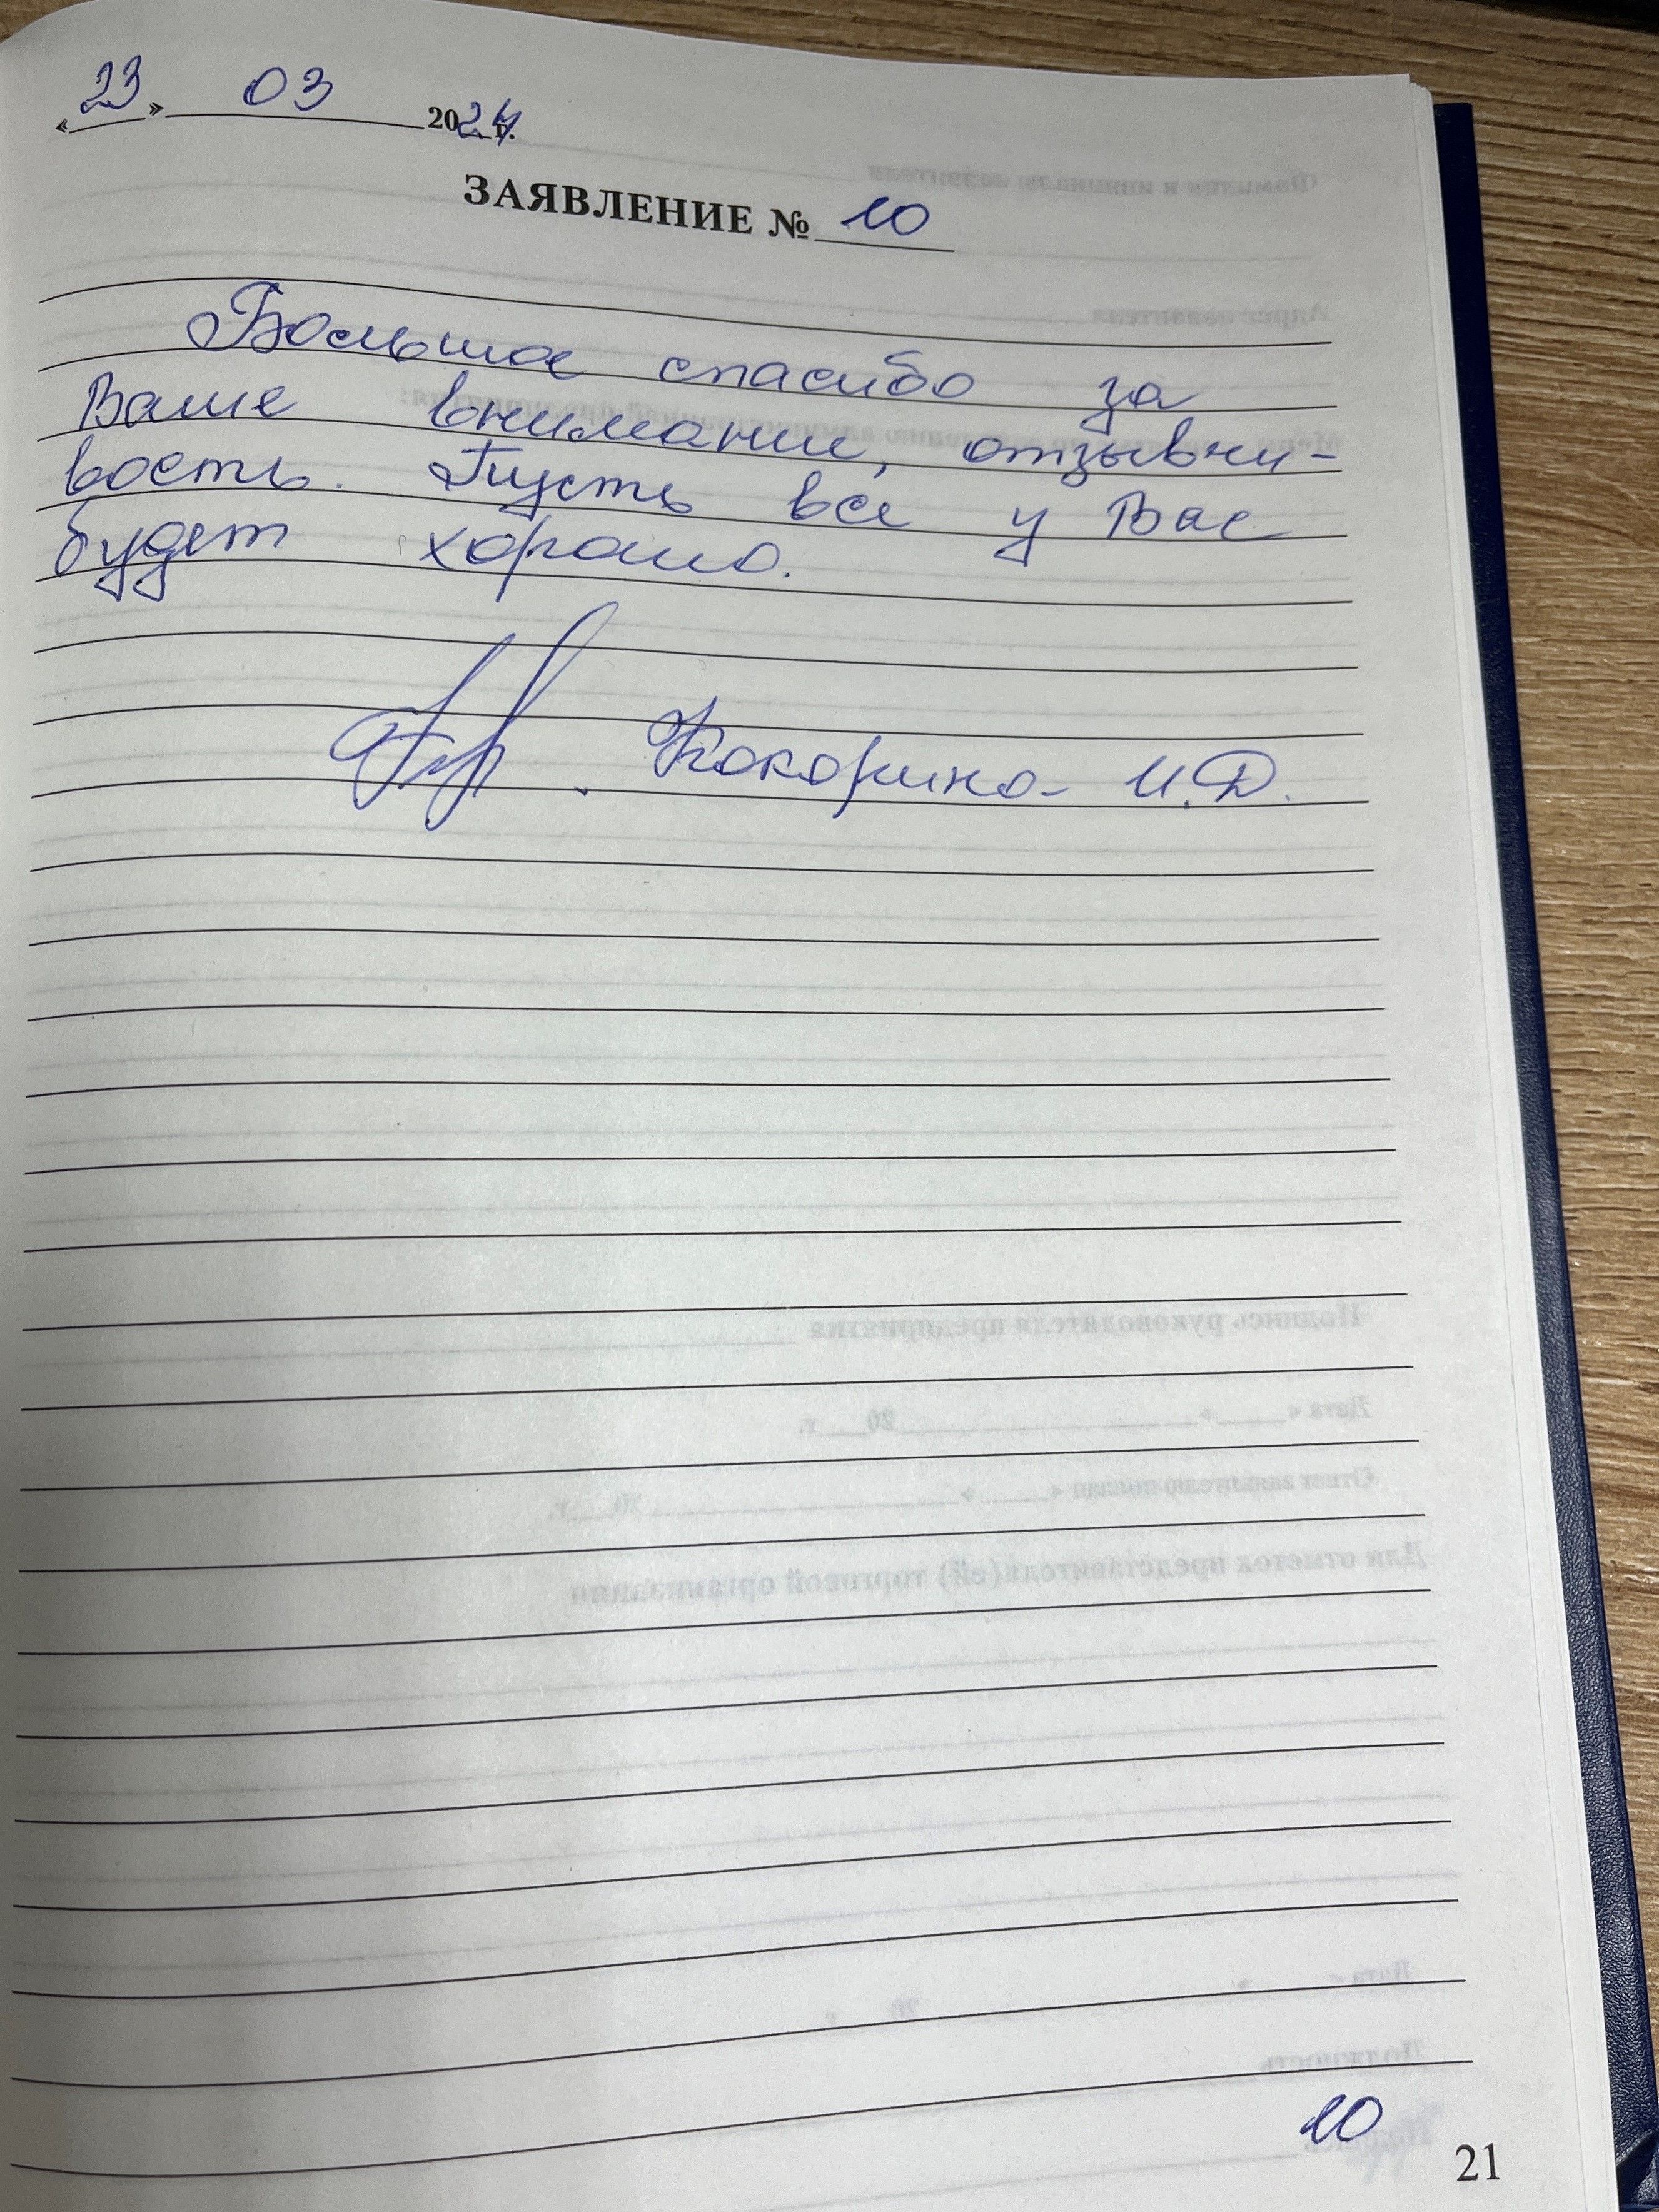 «23» 03 2024 г.
ЗАЯВЛЕНИЕ № 10
Большое спасибо за
Ваше внимание, отзывчи-
вость. Пусть все у Вас
будет хорошо.
Кокорина И.Д.
10
21